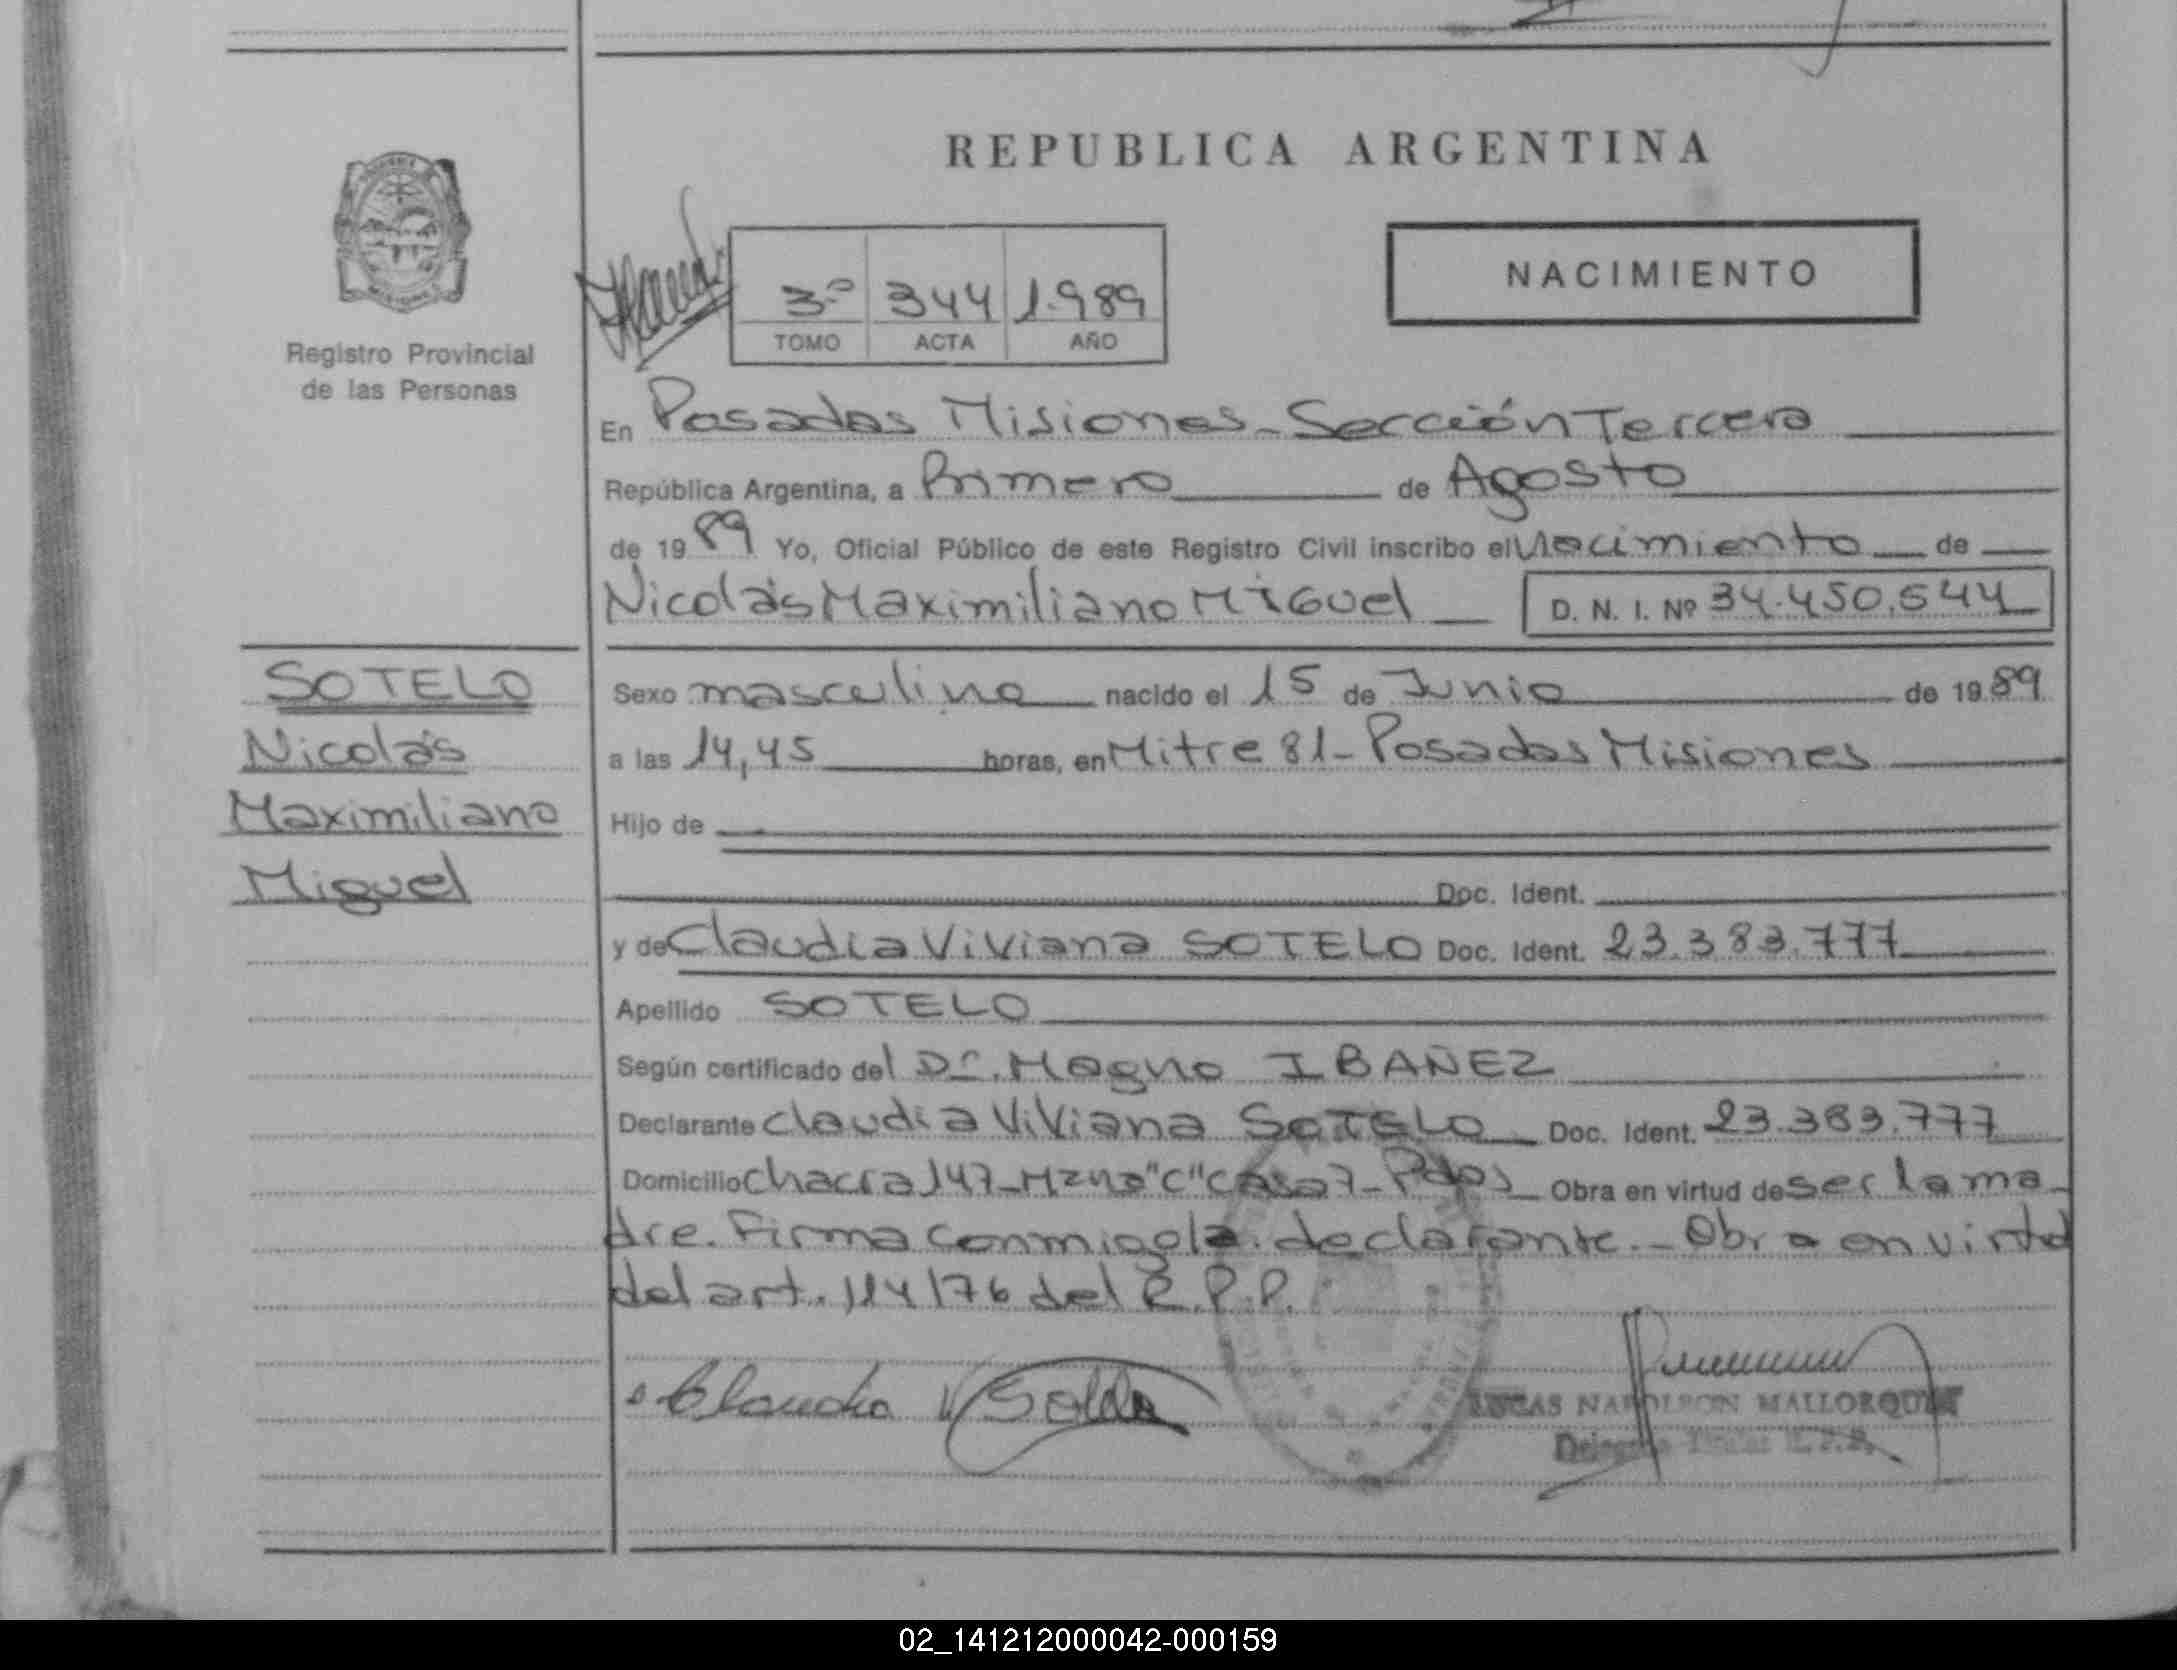 REPUBLICA ARGENTINA
NACIMIENTO
3º 344 1.989
TOMO ACTA AÑO
Registro Provincial
de las Personas
En Posadas Misiones - Sección Tercera
República Argentina, a Primero de Agosto
de 1989 Yo, Oficial Público de este Registro Civil inscribo el Nacimiento de
Nicolás Maximiliano Miguel D. N. I. Nº 34.450.544
SOTELO
Nicolás
Maximiliano
Miguel
Sexo masculino nacido el 15 de Junio de 1989
a las 14,45 horas, en Mitre 81 - Posadas Misiones
Hijo de
Doc. Ident.
y de Claudia Viviana SOTELO Doc. Ident. 23.383.777
Apellido SOTELO
Según certificado del Dr. Magno IBAÑEZ
Declarante Claudia Viviana SOTELO Doc. Ident. 23.383.777
Domicilio Chacra 147 - Mzna "C" casa 7 - Pdas Obra en virtud de ser la ma-
dre. Firma conmigo la declarante. - Obra en virtud
del art. 114/76 del R.P.P.
Claudia V
LUCAS NAPOLEON MALLORQUIN
02_141212000042-000159